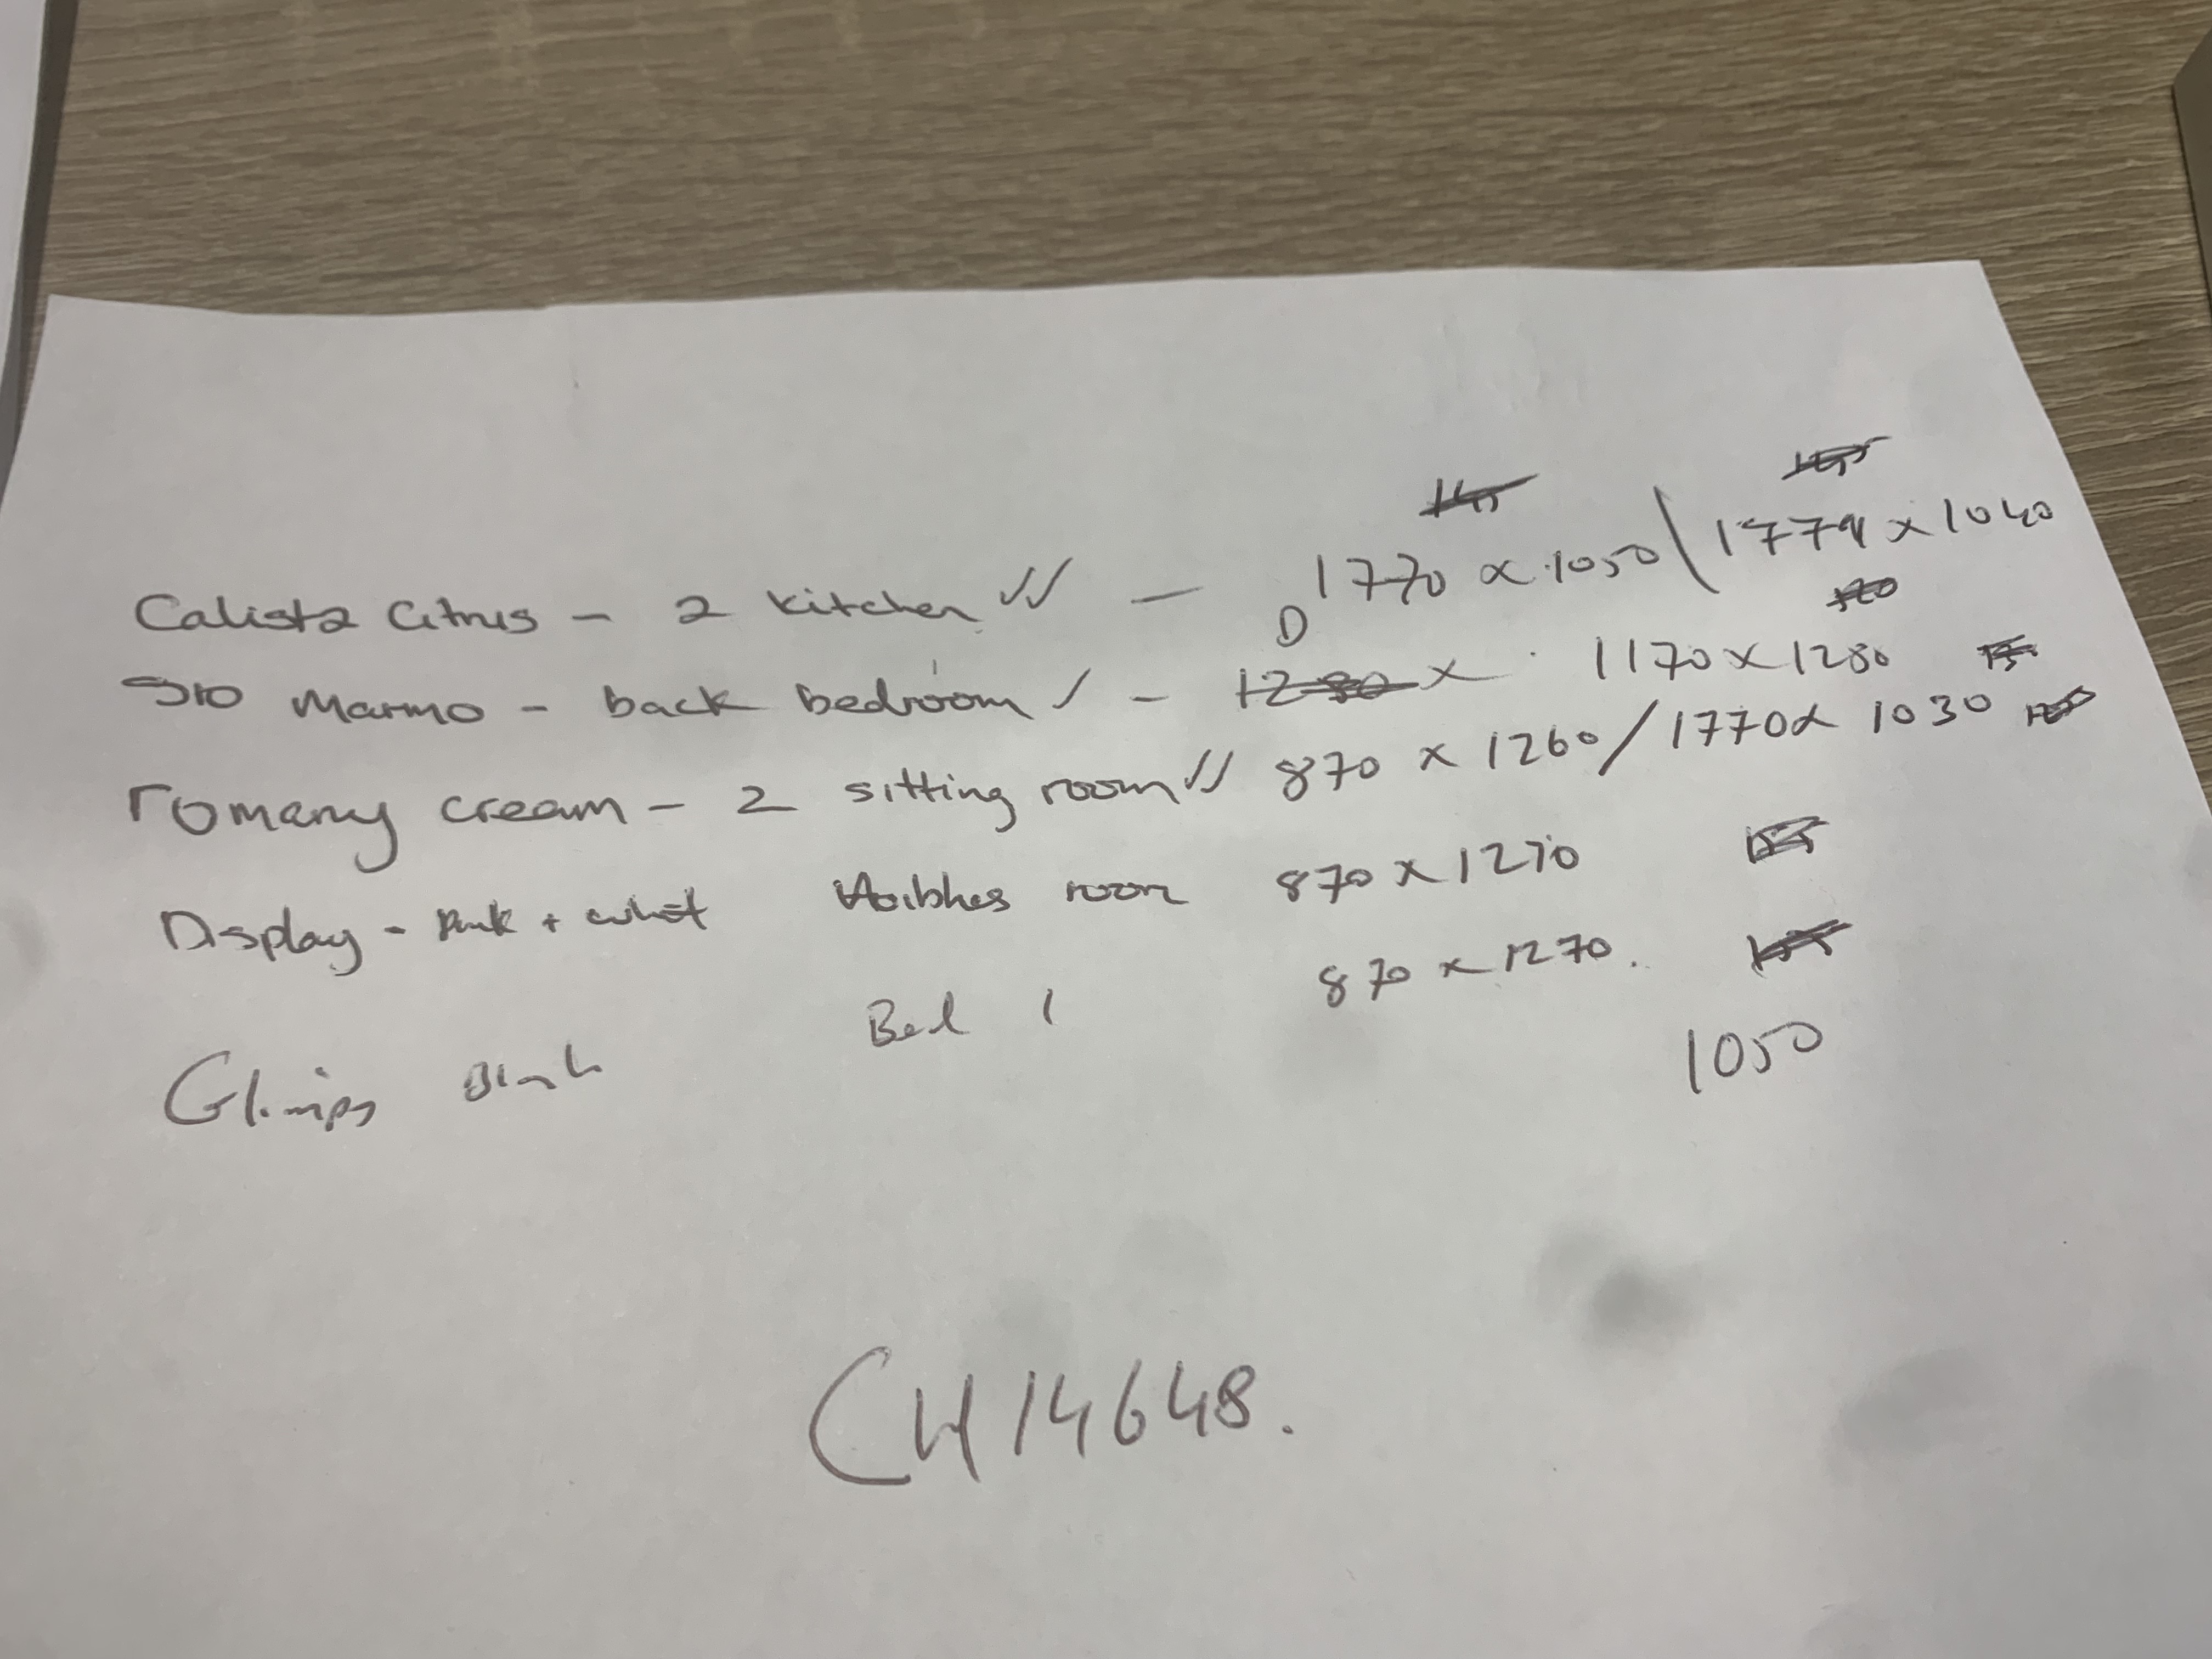 Calista Citrus - 2 kitchen ✓✓ - D 1770 x 1050 \ 1771 x 1040
Marmo - back bedroom ✓ - x 1170 x 1280
romany cream - 2 sitting room ✓✓ 870 x 1260 / 1770 x 1030
Display - Pink + whit room 870 x 1270
Bed 1 870 x 1270.
1050
CH14648.